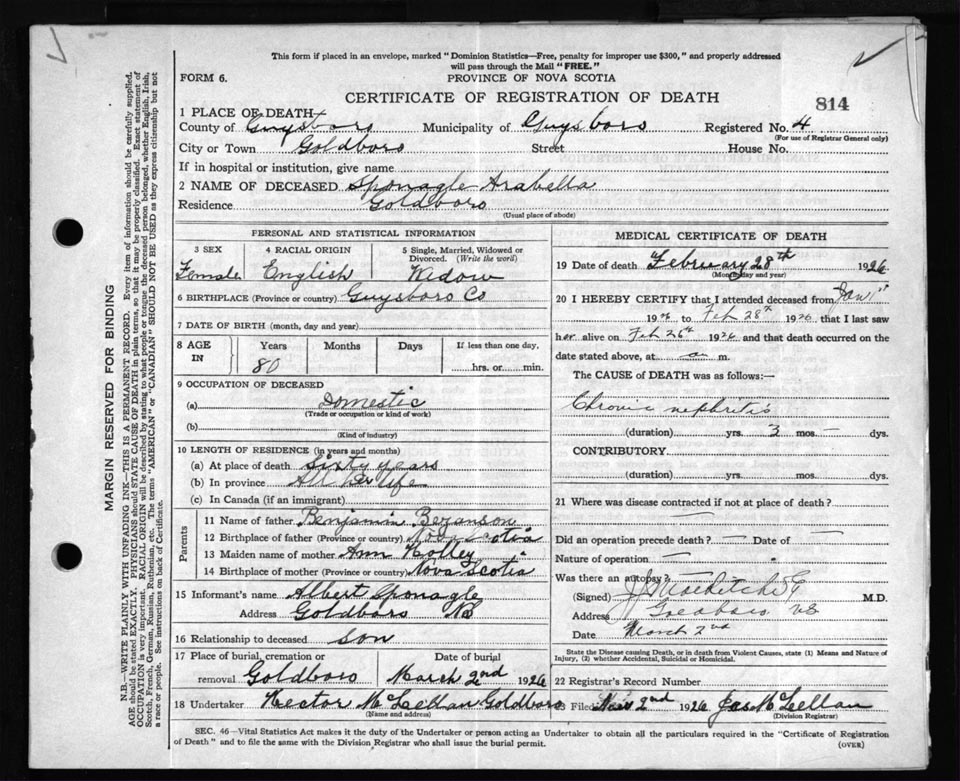 This form if placed in an envelope, marked "Dominion Statistics—Free, penalty for improper use $300," and properly addressed
will pass through the Mail "FREE."
FORM 6.
PROVINCE OF NOVA SCOTIA
CERTIFICATE OF REGISTRATION OF DEATH
814
1 PLACE OF DEATH
County of Guysboro Municipality of Guysboro Registered No. 4
(For use of Registrar General only)
City or Town Goldboro Street House No.
If in hospital or institution, give name
2 NAME OF DECEASED Sponagle Arabella
Residence Goldboro
(Usual place of abode)
PERSONAL AND STATISTICAL INFORMATION
3 SEX 4 RACIAL ORIGIN 5 Single, Married, Widowed or
Divorced. (Write the word)
Female English Widow
6 BIRTHPLACE (Province or country) Guysboro Co
7 DATE OF BIRTH (month, day and year)
8 AGE IN Years Months Days If less than one day,
80 hrs. or min.
9 OCCUPATION OF DECEASED
(a) Domestic
(Trade or occupation or kind of work)
(b)
(Kind of industry)
10 LENGTH OF RESIDENCE (in years and months)
(a) At place of death Sixty years
(b) In province All her life
(c) In Canada (if an immigrant)
Parents
11 Name of father Benjamin Bezanson
12 Birthplace of father (Province or country) Nova Scotia
13 Maiden name of mother Ann
14 Birthplace of mother (Province or country) Nova Scotia
15 Informant's name Albert Sponagle
Address Goldboro NS
16 Relationship to deceased Son
17 Place of burial, cremation or Date of burial
removal Goldboro March 2nd 1926
18 Undertaker Hector McLellan Goldboro
(Name and address)
MEDICAL CERTIFICATE OF DEATH
19 Date of death February 28th 1926
(Month, day and year)
20 I HEREBY CERTIFY that I attended deceased from Jan
1926 to Feb 28th 1926 that I last saw
her alive on Feb 26th 1926 and that death occurred on the
date stated above, at m.
The CAUSE of DEATH was as follows:—
Chronic nephritis
(duration) yrs. 3 mos. — dys.
CONTRIBUTORY
(duration) yrs. mos. dys.
21 Where was disease contracted if not at place of death?
—
Did an operation precede death? — Date of —
Nature of operation —
Was there an autopsy? —
(Signed) M.D.
Address Goldboro NS
Date March 2nd
State the Disease causing Death, or in death from Violent Causes, state (1) Means and Nature of
Injury, (2) whether Accidental, Suicidal or Homicidal.
22 Registrar's Record Number
23 Filed Mar 2nd 1926 Jas McLellan
(Division Registrar)
SEC. 46—Vital Statistics Act makes it the duty of the Undertaker or person acting as Undertaker to obtain all the particulars required in the "Certificate of Registration
of Death" and to file the same with the Division Registrar who shall issue the burial permit.
(OVER)
MARGIN RESERVED FOR BINDING
N.B.—WRITE PLAINLY WITH UNFADING INK—THIS IS A PERMANENT RECORD. Every item of information should be carefully supplied.
AGE should be stated EXACTLY. PHYSICIANS should STATE CAUSE OF DEATH in plain terms, so that it may be properly classified. Exact statement of
OCCUPATION is very important. RACIAL ORIGIN will be described by stating to what people or tongue the deceased person belonged, whether English, Irish,
Scotch, French, German, Russian, Ruthenian, etc. The terms "AMERICAN" or "CANADIAN" SHOULD NOT BE USED as they express citizenship but not
a race or people. See instructions on back of Certificate.